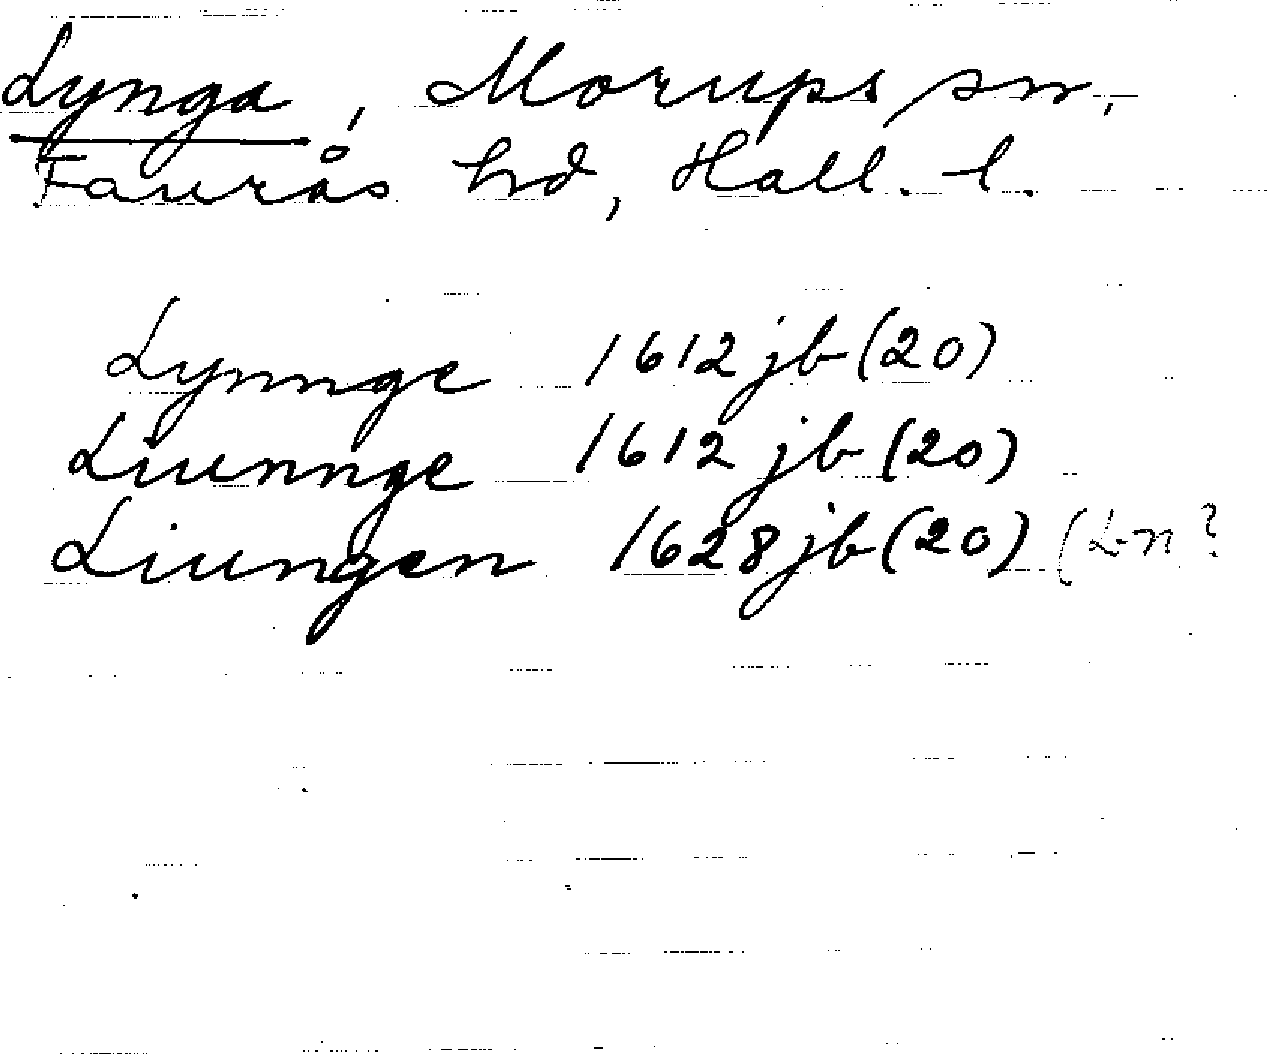 Lynga, Morups sn,
Faurås hd, Hall. l.
Lynnge 1612 jb (20)
Liunnge 1612 jb (20)
Liungen 1628 jb (20) (L-n?